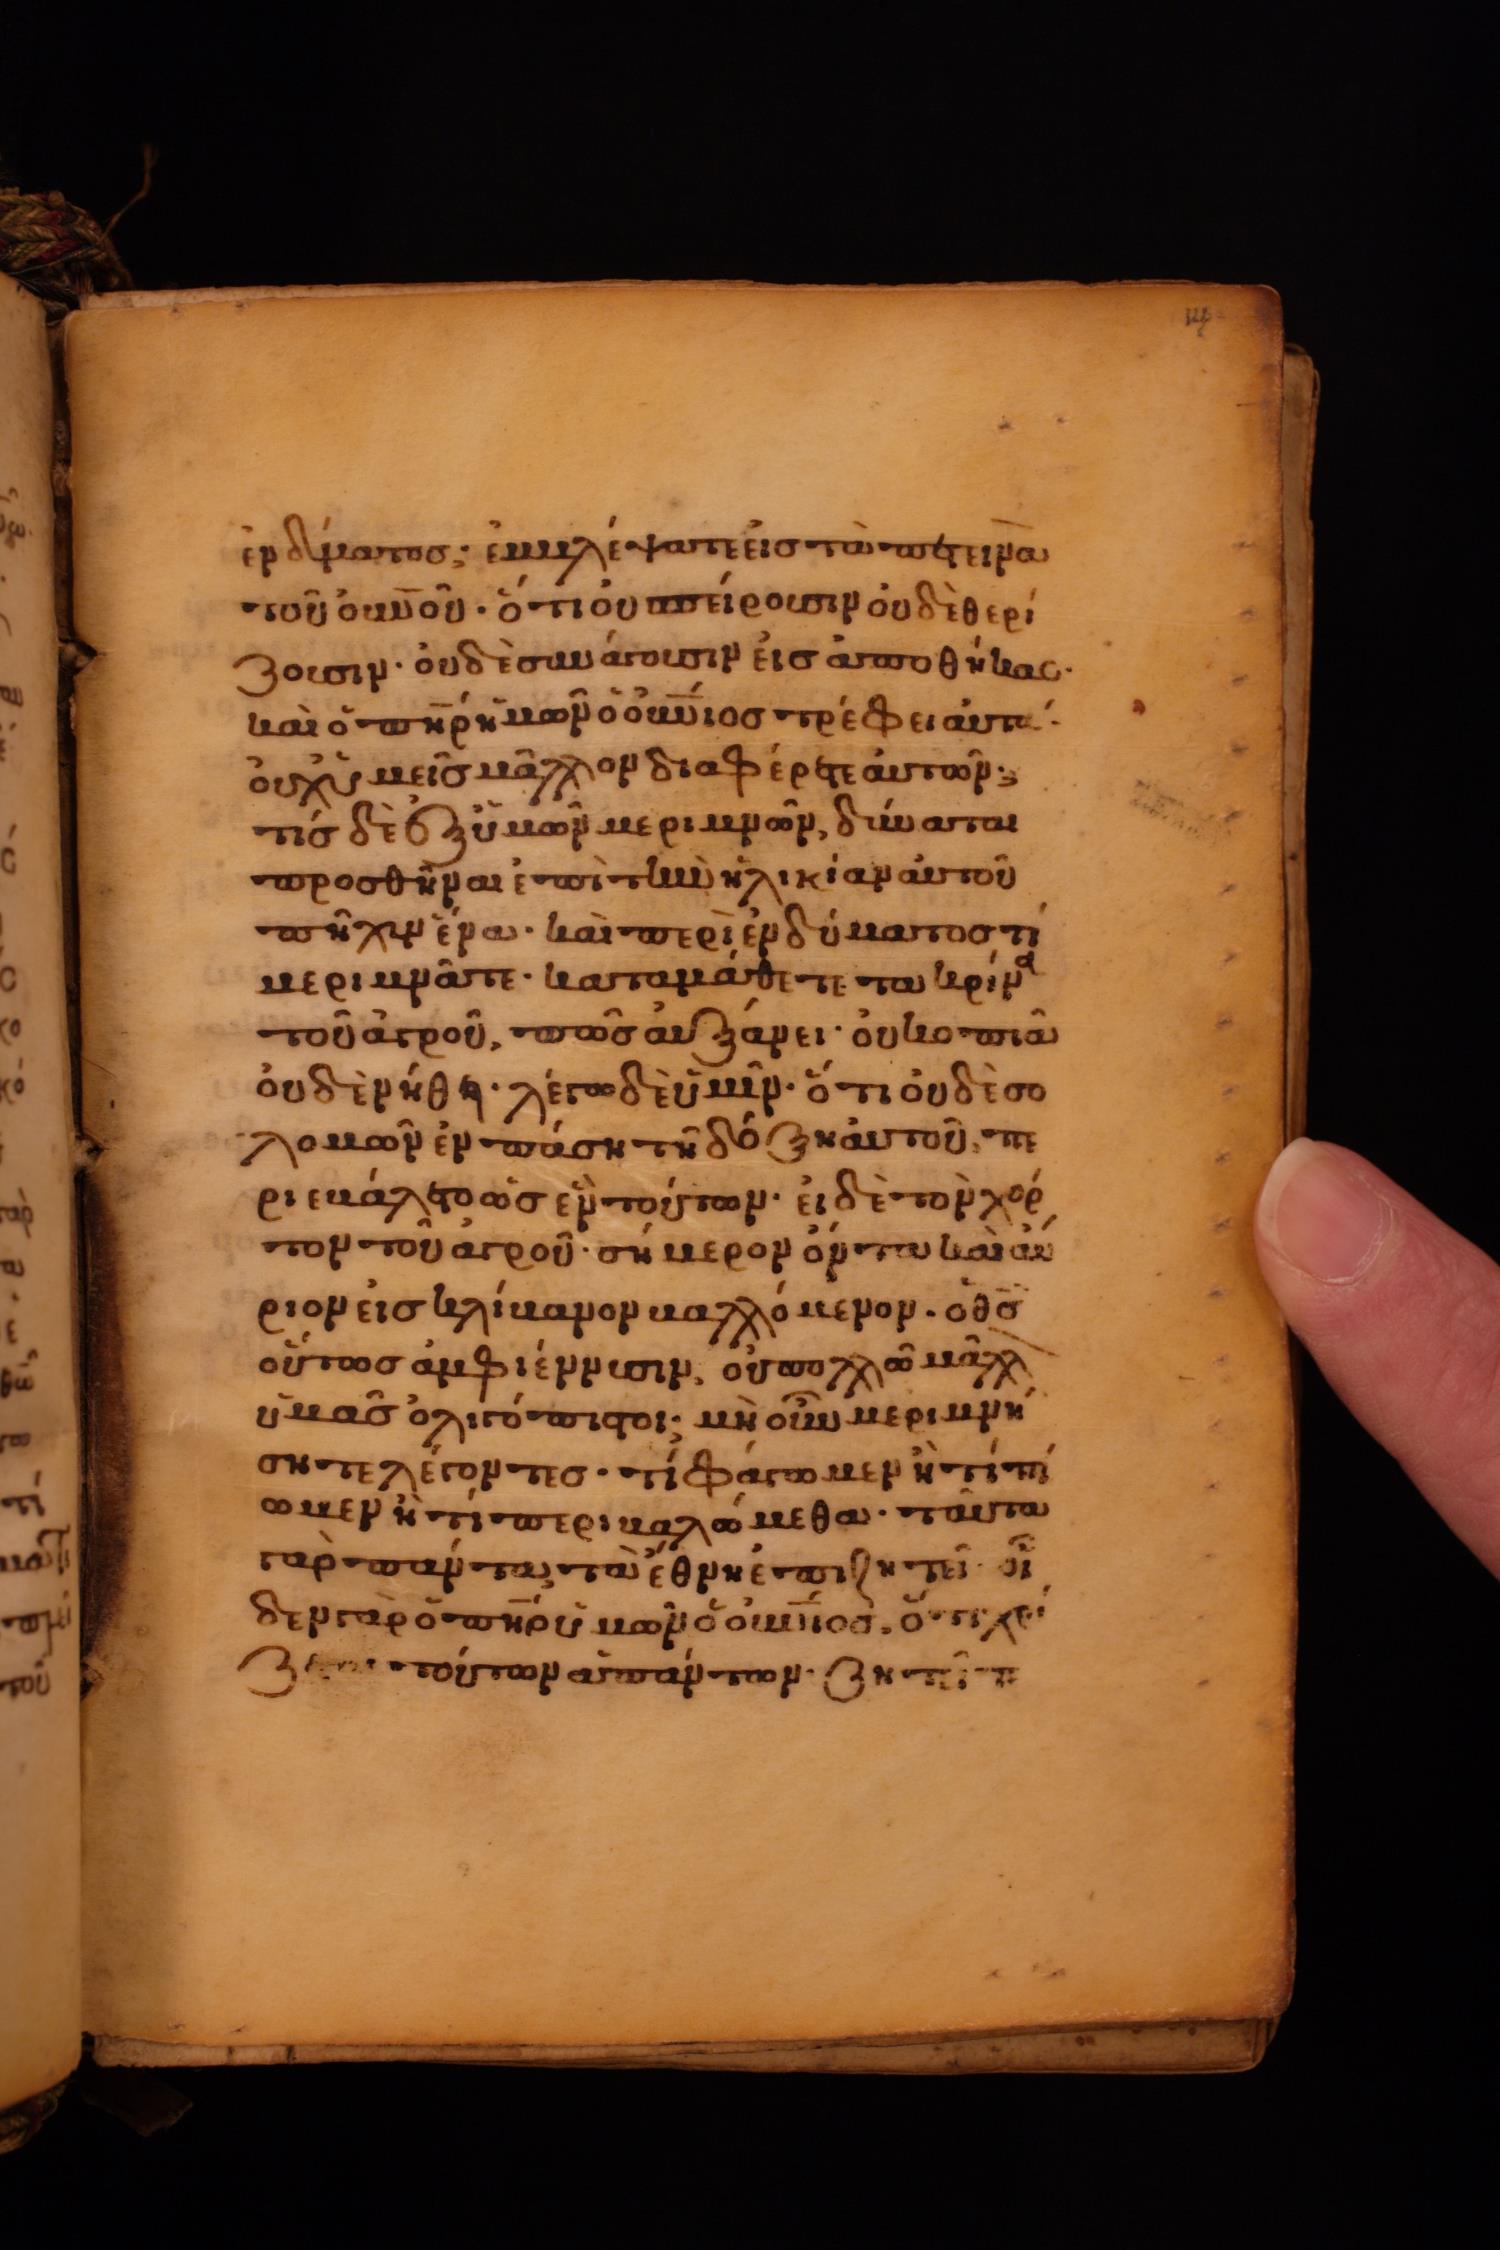 ἐνδύματος; ἐμβλέψατε εἰς τὰ πετεινὰ
τοῦ οὐνοῦ· ὅτι οὐ σπείρουσιν οὐδὲ θερί
ζουσιν· οὐδὲ συνάγουσιν εἰς ἀποθήκας·
καὶ ὁ πηρ ἡμῶν ὁ οὐνιος τρέφει αὐτά·
οὐχ ὑμεῖς μᾶλλον διαφέρετε αὐτῶν;
τίς δὲ ἐξ ὑμῶν μεριμνῶν, δύναται
προσθῆναι ἐπὶ τὴν ἡλικίαν αὐτοῦ
πῆχυν ἕνα· καὶ περὶ ἐνδύματος τί
μεριμνᾶτε· καταμάθετε τὰ κρίνα
τοῦ ἀγροῦ, πῶς αὐξάνει· οὐ κοπιᾶ
οὐδὲ νήθει· λέγω δὲ ὑμῖν· ὅτι οὐδὲ σο
λομῶν ἐν πάσῃ τῇ δόξῃ αὐτοῦ, πε
ριεβάλετο ὡς ἓν τούτων· εἰ δὲ τὸν χόρ
τον τοῦ ἀγροῦ· σήμερον ὄντα καὶ αὔ
ριον εἰς κλίβανον βαλλόμενον· ὁ θς
οὕτως ἀμφιέννυσιν, οὐ πολλῶ μᾶλλ
ὑμᾶς ὀλιγόπιστοι; μὴ οὖν μεριμνή
σητε λέγοντες· τί φάγωμεν ἢ τί πί
ωμεν ἢ τί περιβαλώμεθα· ταῦτα
γὰρ πάντα, τὰ ἔθνη ἐπιζητεῖ· οἶ
δεν γὰρ ὁ πηρ ὑμῶν ὁ οὐνιος, ὅτι χρή
ζετε τούτων ἁπάντων· ζητεῖτε